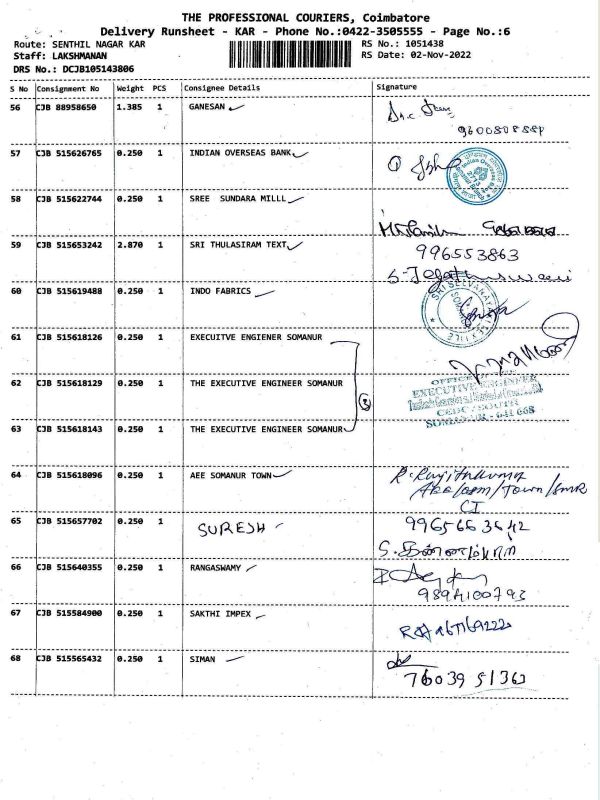 THE PROFESSIONAL COURIERS, Coimbatore
Delivery Runsheet - KAR - Phone No.:0422-3505555 - Page No.:6
Route: SENTHIL NAGAR KAR
RS No.: 1051438
Staff: LAKSHMANAN
RS Date: 02-Nov-2022
DRS No.: DCJB105143806
S No Consignment No Weight PCS Consignee Details Signature
56 CJB 88958650 1.385 1 GANESAN
57 CJB 515626765 0.250 1 INDIAN OVERSEAS BANK
58 CJB 515622744 0.250 1 SREE SUNDARA MILLL
59 CJB 515653242 2.870 1 SRI THULASIRAM TEXT 996553863
60 CJB 515619488 0.250 1 INDO FABRICS
61 CJB 515618126 0.250 1 EXECUITVE ENGIENER SOMANUR
62 CJB 515618129 0.250 1 THE EXECUTIVE ENGINEER SOMANUR
EXECUTIVE ENGINEER
CEDC / SOUTH
SOMANUR - 641 668
63 CJB 515618143 0.250 1 THE EXECUTIVE ENGINEER SOMANUR
64 CJB 515618096 0.250 1 AEE SOMANUR TOWN
65 CJB 515657702 0.250 1 SURESH 9965663642
66 CJB 515640355 0.250 1 RANGASWAMY
9894100793
67 CJB 515584900 0.250 1 SAKTHI IMPEX
68 CJB 515565432 0.250 1 SIMAN
76039 51363